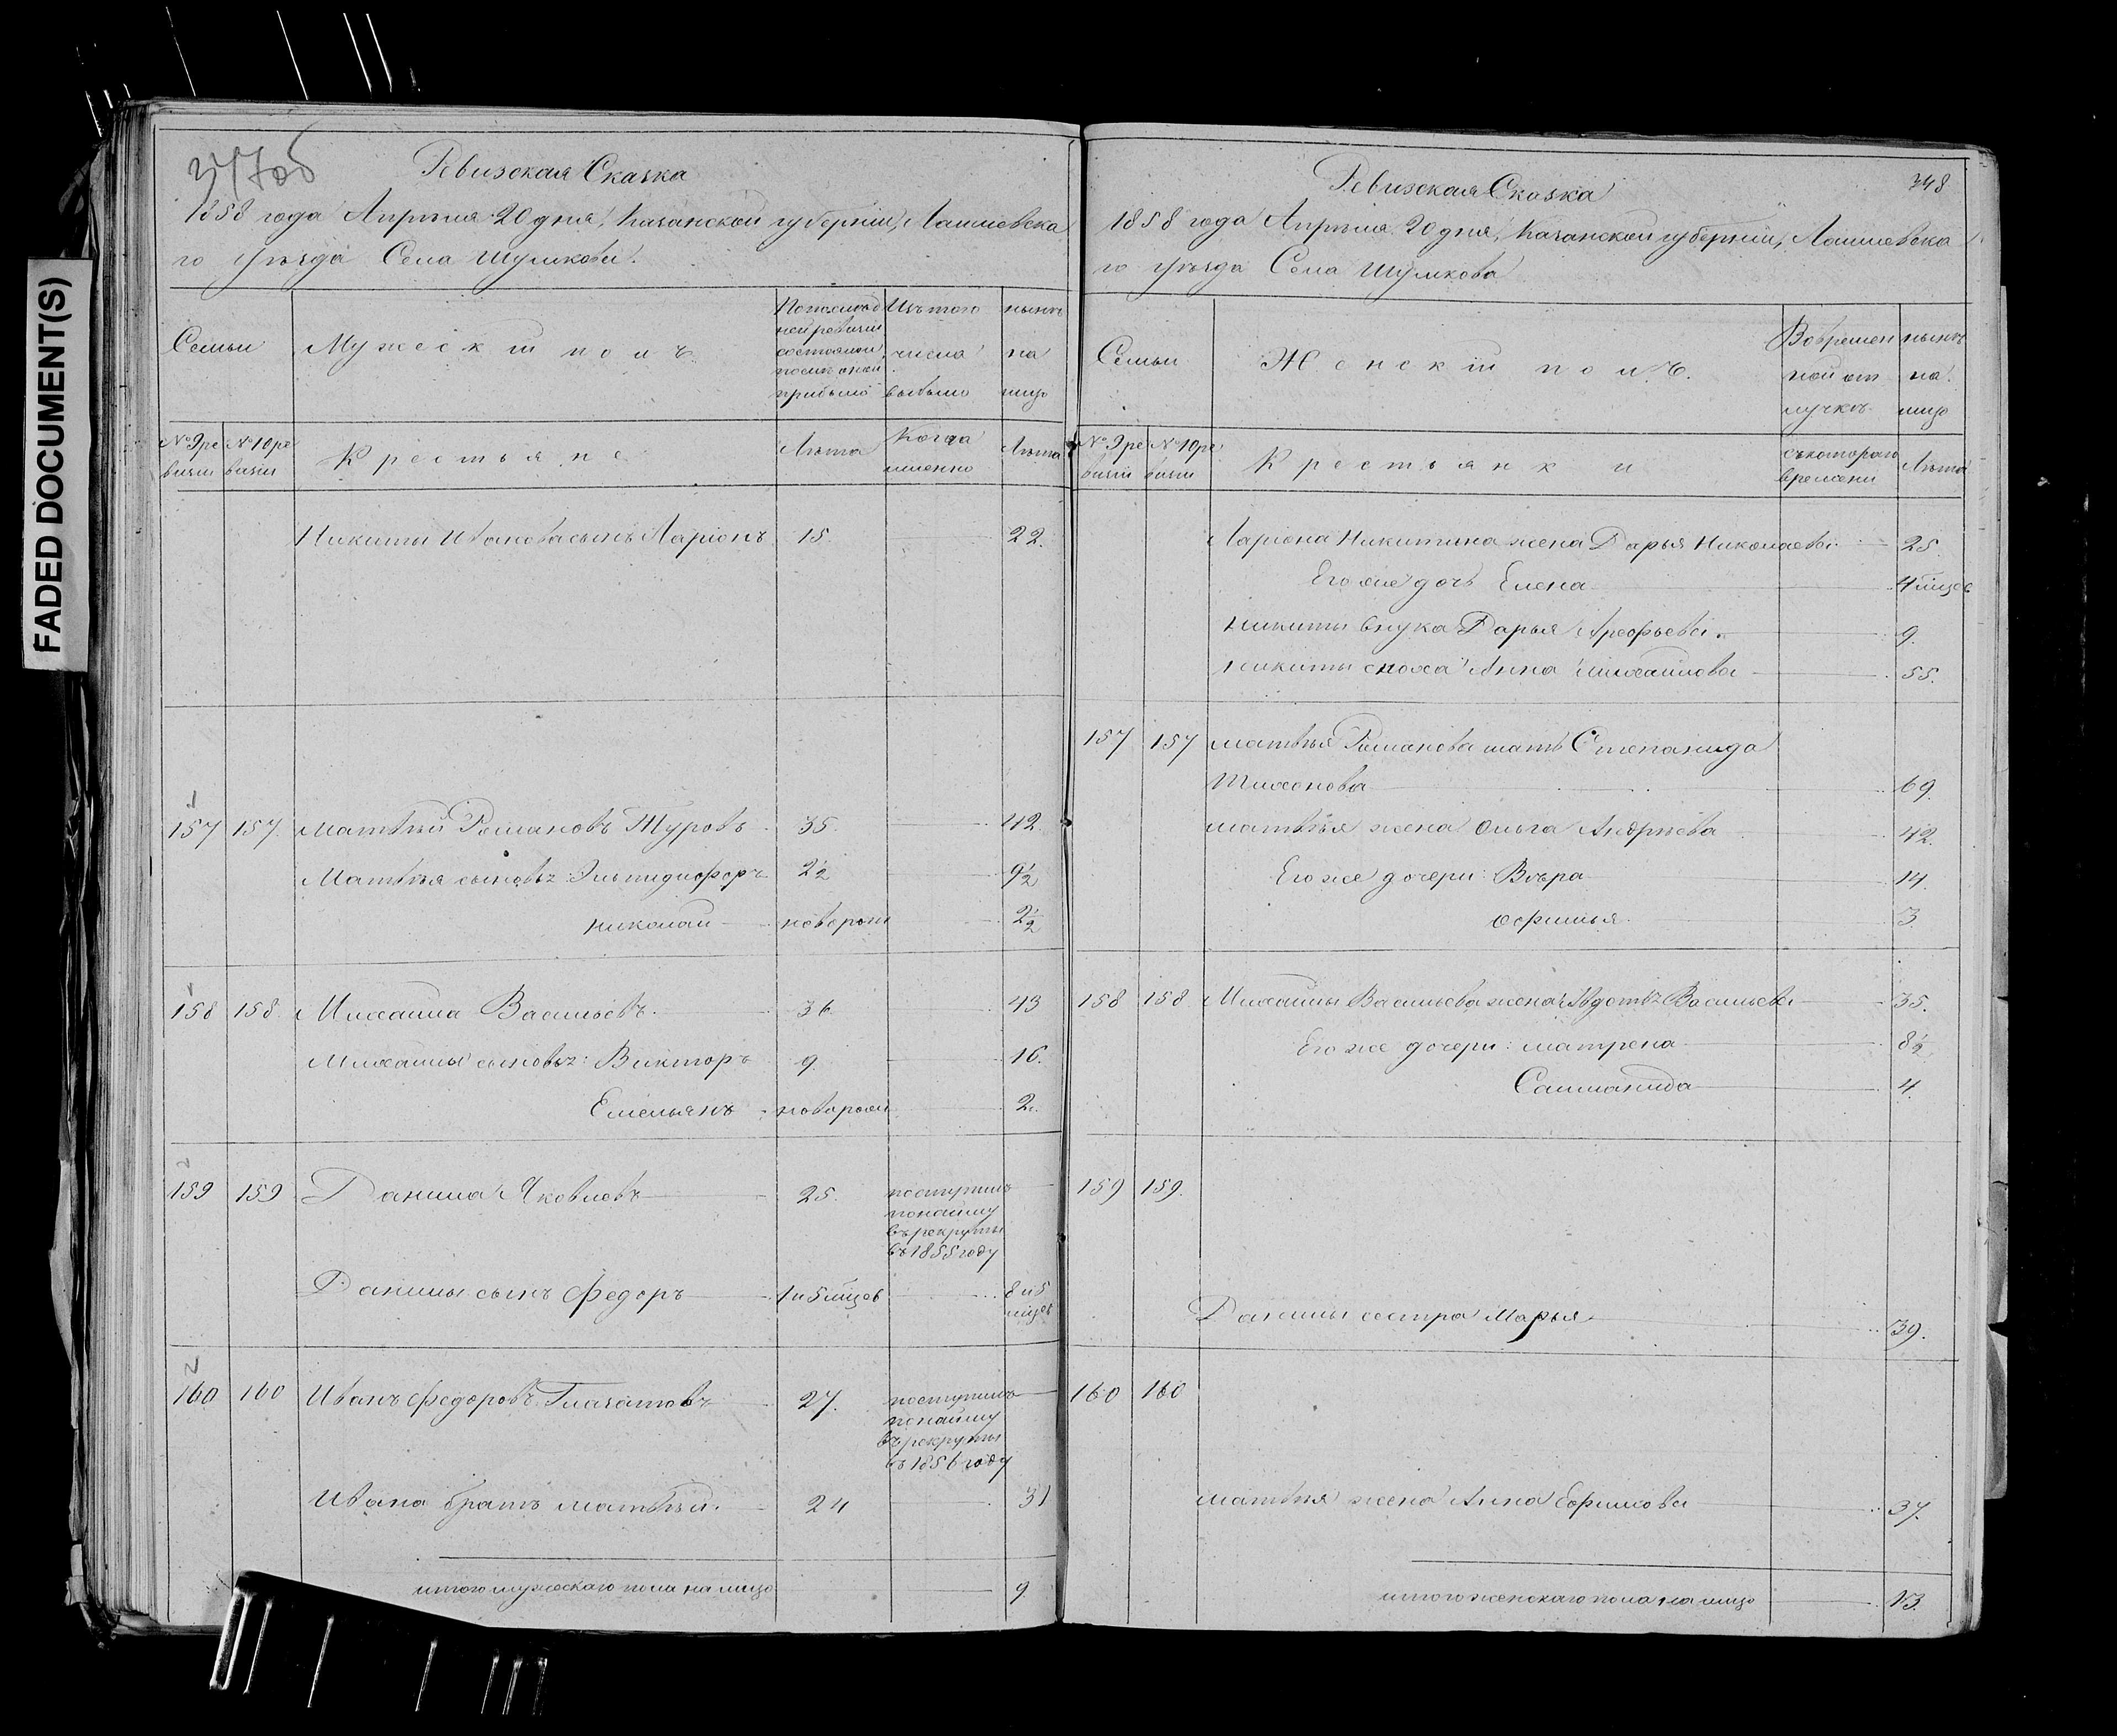 FADED DOCUMENT(S)
Ревизская Сказка
1858 года Апрѣля 20 дня, Казанской губерніи, Лаишевска
го уѣзда Села Шумкова.
Семьи
Мужескій полъ
По послѣд
ней ревизіи
состояло и
послѣ оной
прибыло
Изъ того
числа
выбыло
нынѣ
на
лицо
№ 9 ре
визіи
№ 10 ре
визіи
Крестьяне
Лѣта
Когда
именно
Лѣта
Никиты Иванова сынъ Ларіонъ 15. 22.
157 157. Матвѣй Романовъ Туровъ 35. 42.
Матвѣя сыновья: Эльпидифоръ 2½ 9½
Николай новорож 2½
158 158. Михаила Васильевъ. 36 43
Михаилы сыновья: Викторъ 9. 16.
Емельянъ новорож 2.
159 159 Данила Яковлевъ 25. поступилъ
по найму
въ рекруты
въ 1855 году
Данилы сынъ Федоръ 1 и 5 мѣцов 8 и 5
мѣцов
160 160 Иванъ Федоровъ 27. поступилъ
по найму
въ рекруты
въ 1856 году
Ивана братъ Матвѣй. 24 31
итого мужескаго пола на лицо 9.
Ревизская Сказка
348
1858 года Апрѣля 20 дня, Казанской губерніи, Лаишевска
го уѣзда Села Шумкова
Семьи
Женскій полъ.
Во времен
ной от
лучкѣ
нынѣ
на
лицо
№ 9 ре
визіи
№ 10 ре
визіи
Крестьянки
съ котораго
времени
Лѣта
Ларіона Никитина жена Дарья Николаева 25.
Его же дочь Елена 4 мѣцов
Никиты внука Дарья Арефьева. 9.
Никиты сноха Анна Михайлова 55.
157 157 Матвѣя Романова мать Степанида
Тихонова 69.
Матвѣя жена Ольга Андрѣева 42.
Его же дочери: Вѣра 14.
Офимья 3.
158 158 Михаилы Васильева жена Авдотья Васильева 35.
Его же дочери: Матрена 8½
4.
159 159.
Данилы сестра Марья 39.
160 160
Матвѣя жена Анна Ефимова 37.
итого женскаго пола на лицо 13.